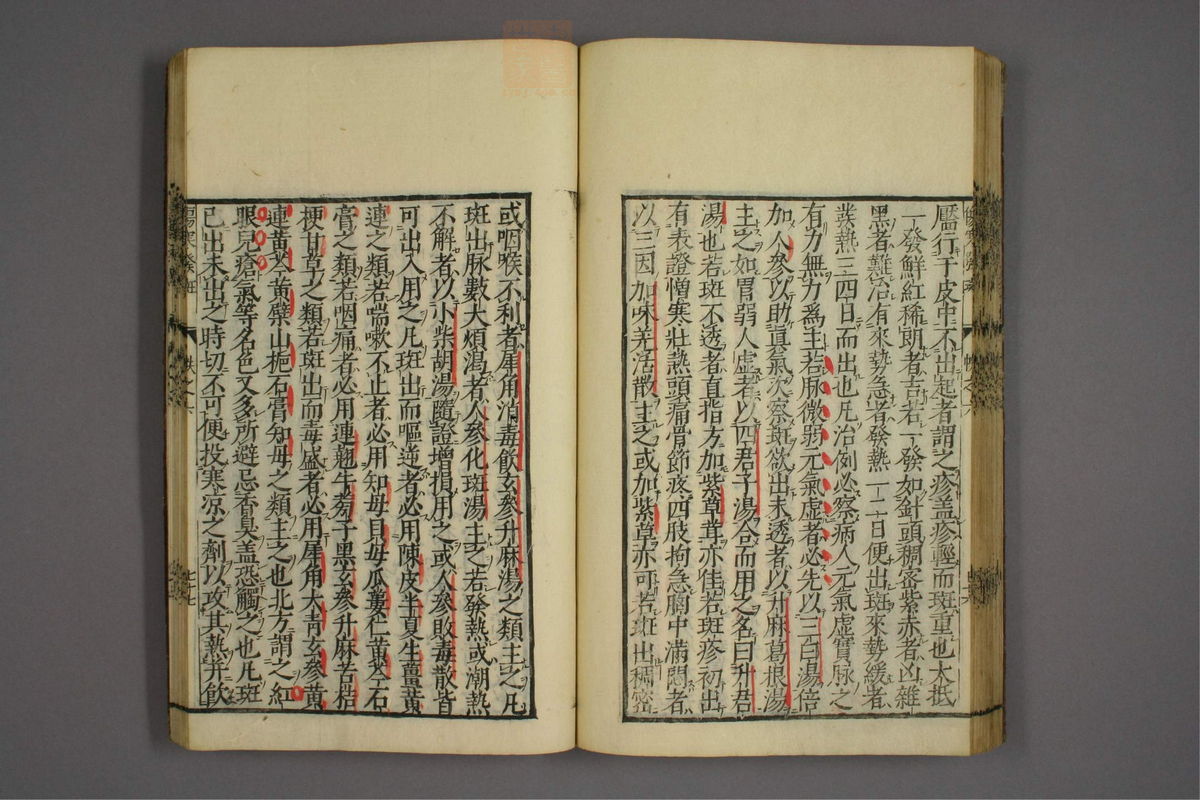 靨行于皮中不出起者謂之疹盖疹輕而斑重也大抵
一發鮮紅稀朗者吉若一發如針頭稠密紫赤者凶雜
黑者難治有來勢急者發熱一二日便出斑來勢緩者
發熱三四日而出也凡治例必察病人元氣虛實脉之
有力無力爲主若脉微弱元氣虛者必先以三白湯倍
加人參以助眞氣次察斑欲出未透者以升麻葛根湯
主之如胃弱人虛者以四君子湯合而用之名曰升君
湯也若斑不透者直指方加紫草茸亦佳若斑疹初出
有表證憎寒壯熱頭痛骨節疼四肢拘急胸中滿悶者
以三因加味羌活散主之或加紫草亦可若斑出稠密
或咽喉不利者犀角消毒飲玄參升麻湯之類主之凡
斑出脉數大煩渴者人參化斑湯主之若發熱或潮熱
不解者以小柴胡湯隨證增損用之或人參敗毒散皆
可出入用之凡斑出而嘔逆者必用陳皮半夏生薑黃
連之類若喘嗽不止者必用知母貝母瓜蔞仁黃芩石
膏之類若咽痛者必用連翹牛蒡子黑玄參升麻苦桔
梗甘草之類若斑出而毒盛者必用犀角大青玄參黃
連黃芩黃蘗山梔石膏知母之類主之也北方謂之紅
眼兒瘡氣等名色又多所避忌香臭盖恐觸之也凡斑
已出未出之時切不可便投寒凉之劑以攻其熱并飲